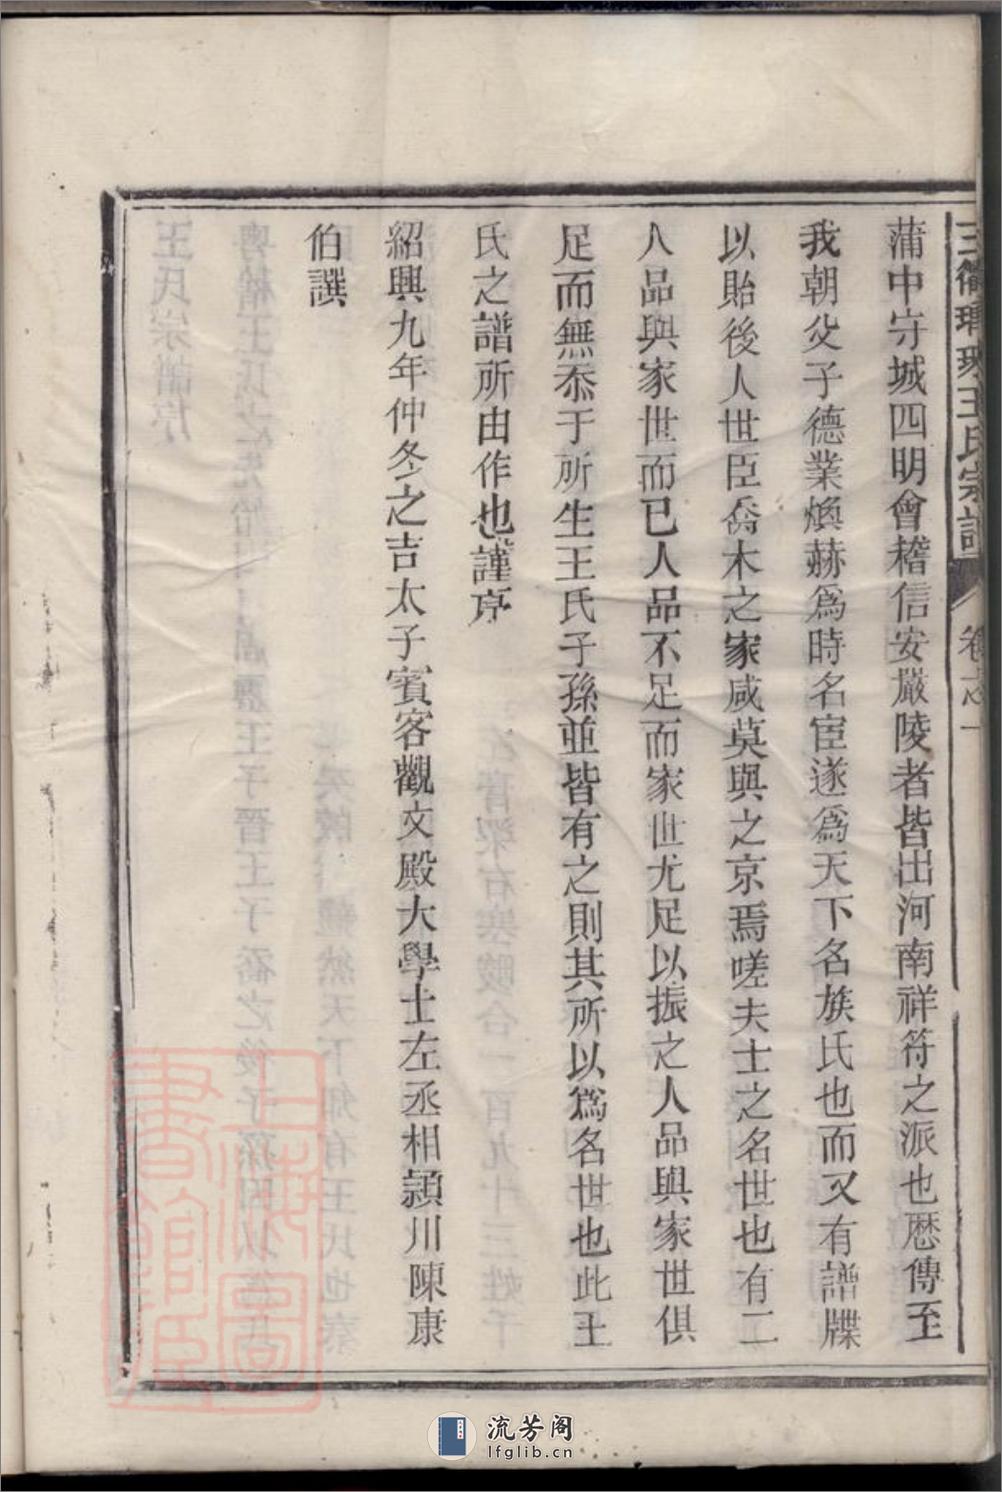 三衢瑯琊王氏宗譜 卷之一
蒲中守城四明會稽信安嚴陵者皆出河南祥符之派也歷傳至
我朝父子德業煥赫爲時名宦遂爲天下名族氏也而又有譜牒
以貽後人世臣喬木之家咸莫與之京焉嗟夫士之名世也有二
人品與家世而已人品不足而家世尤足以振之人品與家世俱
足而無忝于所生王氏子孫並皆有之則其所以爲名世也此王
氏之譜所由作也謹序
紹興九年仲冬之吉太子賓客觀文殿大學士左丞相頴川陳康
伯譔
上海圖
書館藏
流芳阁
lfglib.cn